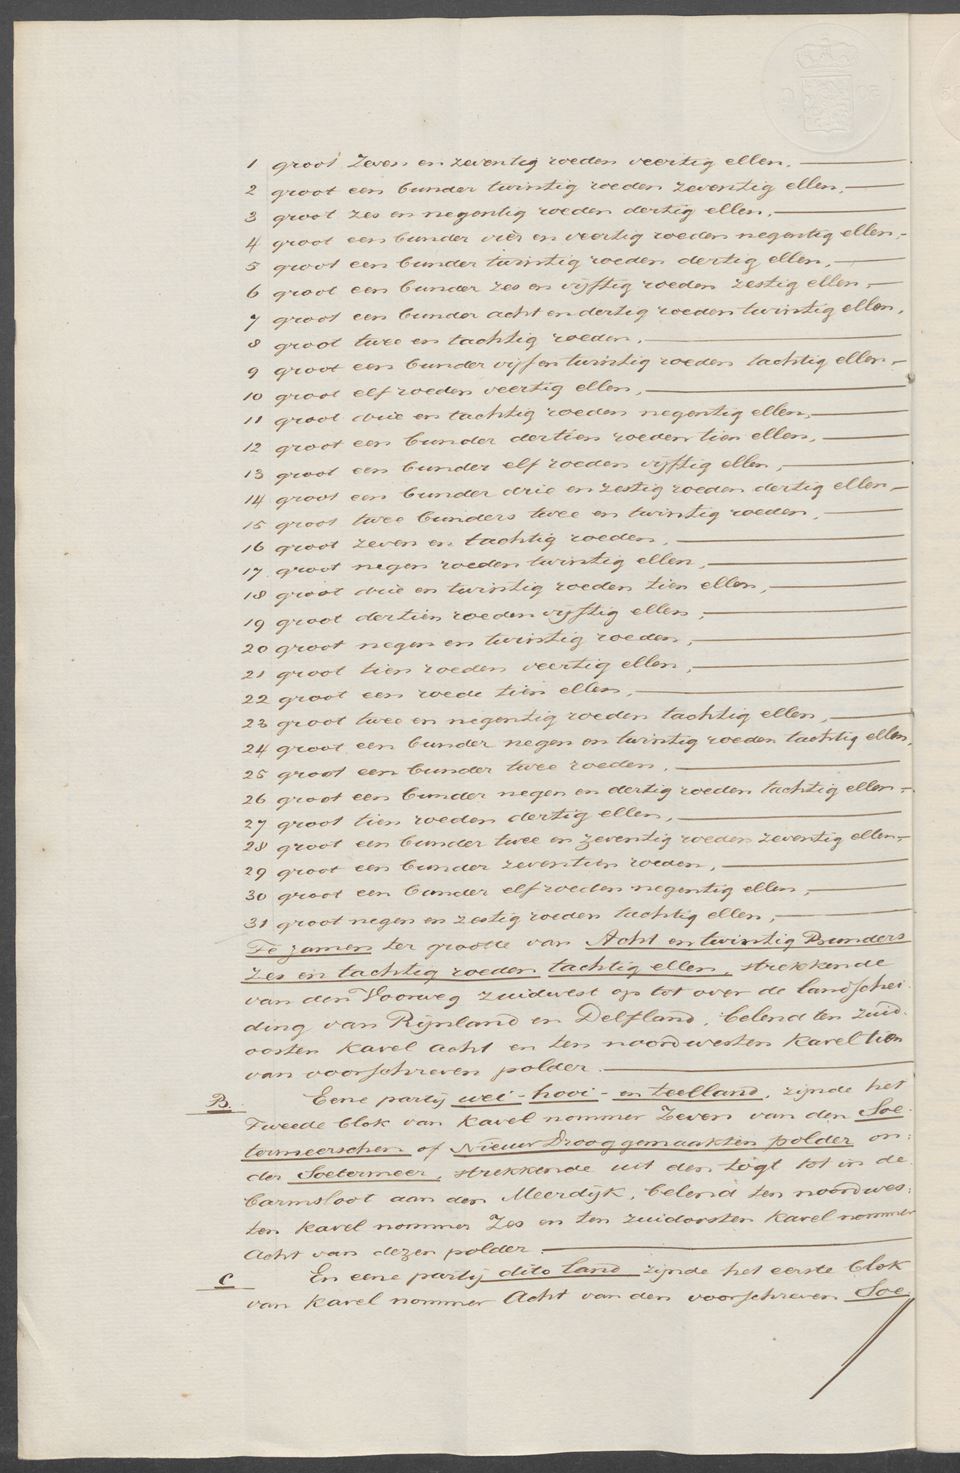 1 groot Zeven en zeventig roeden veertig ellen.
2 groot een bunder twintig roeden zeventig ellen,
3 groot zes en negentig roeden dertig ellen,
4 groot een bunder vier en veertig roeden negentig ellen,
5 groot een bunder twintig roeden dertig ellen,
6 groot een bunder zes en vijftig roeden zestig ellen,
7 groot een bunder acht en dertig roeden twintig ellen,
8 groot twee en tachtig roeden,
9 groot een bunder vijf en twintig roeden tachtig ellen,
10 groot elf roeden veertig ellen,
11 groot drie en tachtig roeden negentig ellen,
12 groot een bunder dertien roeden tien ellen,
13 groot een bunder elf roeden vijftig ellen,
14 groot een bunder drie en zestig roeden dertig ellen,
15 groot twee bunders twee en twintig roeden,
16 groot zeven en tachtig roeden,
17 groot negen roeden twintig ellen,
18 groot drie en twintig roeden tien ellen,
19 groot dertien roeden vijftig ellen,
20 groot negen en twintig roeden,
21 groot tien roeden veertig ellen,
22 groot een roede tien ellen,
23 groot twee en negentig roeden tachtig ellen,
24 groot een bunder negen en twintig roeden tachtig ellen,
25 groot een bunder twee roeden,
26 groot een bunder negen en dertig roeden tachtig ellen,
27 groot tien roeden dertig ellen,
28 groot een bunder twee en zeventig roeden zeventig ellen,
29 groot een bunder zeventien roeden,
30 groot een bunder elf roeden negentig ellen,
31 groot negen en zestig roeden tachtig ellen,
Te zamen ter grootte van Acht en twintig Bunders
Zes en tachtig roeden tachtig ellen, strekkende
van den Voorweg zuidwest op tot over de landschei-
ding van Rijnland en Delfland, belend ten zuid-
oosten Kavel Acht en ten noordwesten Kavel tien
van voorschreven polder.
B. Eene partij wei- hooi- en teelland, zijnde het
Tweede blok van Kavel nommer Zeven van den Soe-
termeerschen of Nieuw Drooggemaakten polder on-
der Soetermeer, strekkende uit den togt tot in de
barmsloot aan den Meerdijk, belend ten noordwes-
ten Kavel nommer Zes en ten zuidoosten Kavel nommer
Acht van dezen polder.
C En eene partij dito land zijnde het eerste blok
van Kavel nommer Acht van den voorschreven Soe